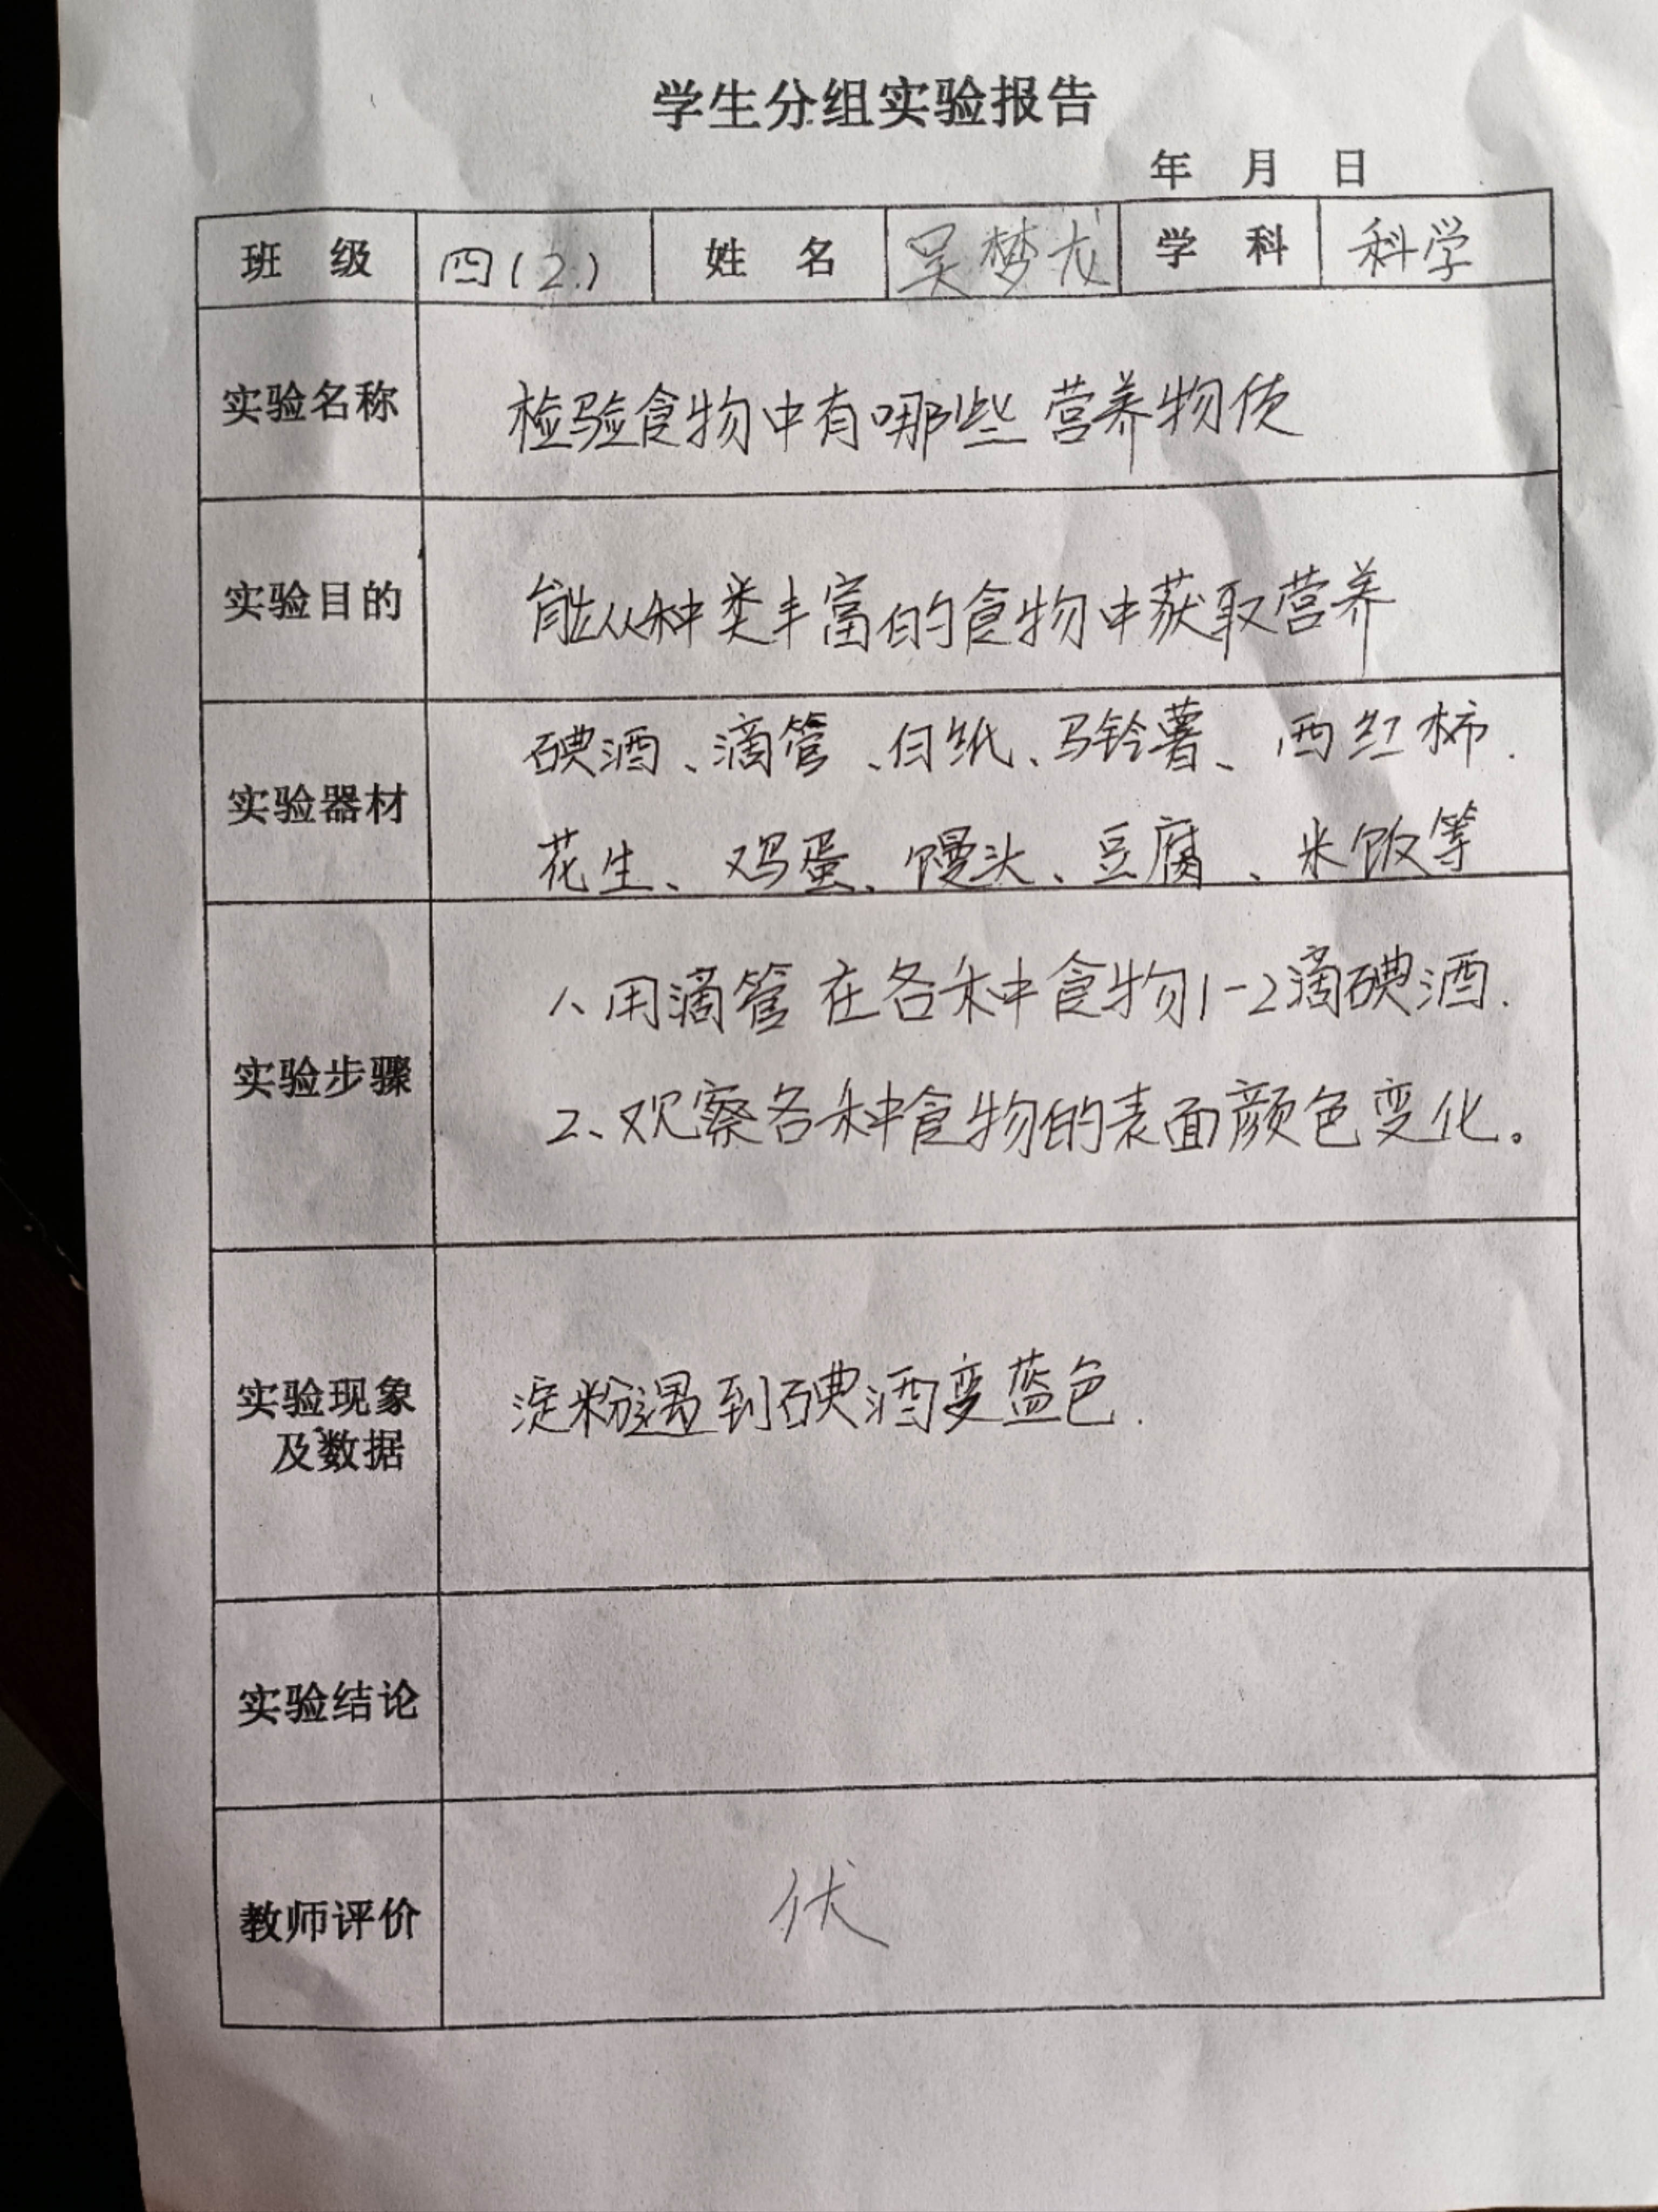 学生分组实验报告
年 月 日
班 级 四(2.) 姓 名 吴梦龙 学 科 科学
实验名称 检验食物中有哪些营养物质
实验目的 能从种类丰富的食物中获取营养
实验器材 碘酒、滴管、白纸、马铃薯、西红柿.
花生、鸡蛋、馒头、豆腐、米饭等
实验步骤 1、用滴管在各种食物1-2滴碘酒.
2、观察各种食物的表面颜色变化。
实验现象
及数据 淀粉遇到碘酒变蓝色.
实验结论
教师评价